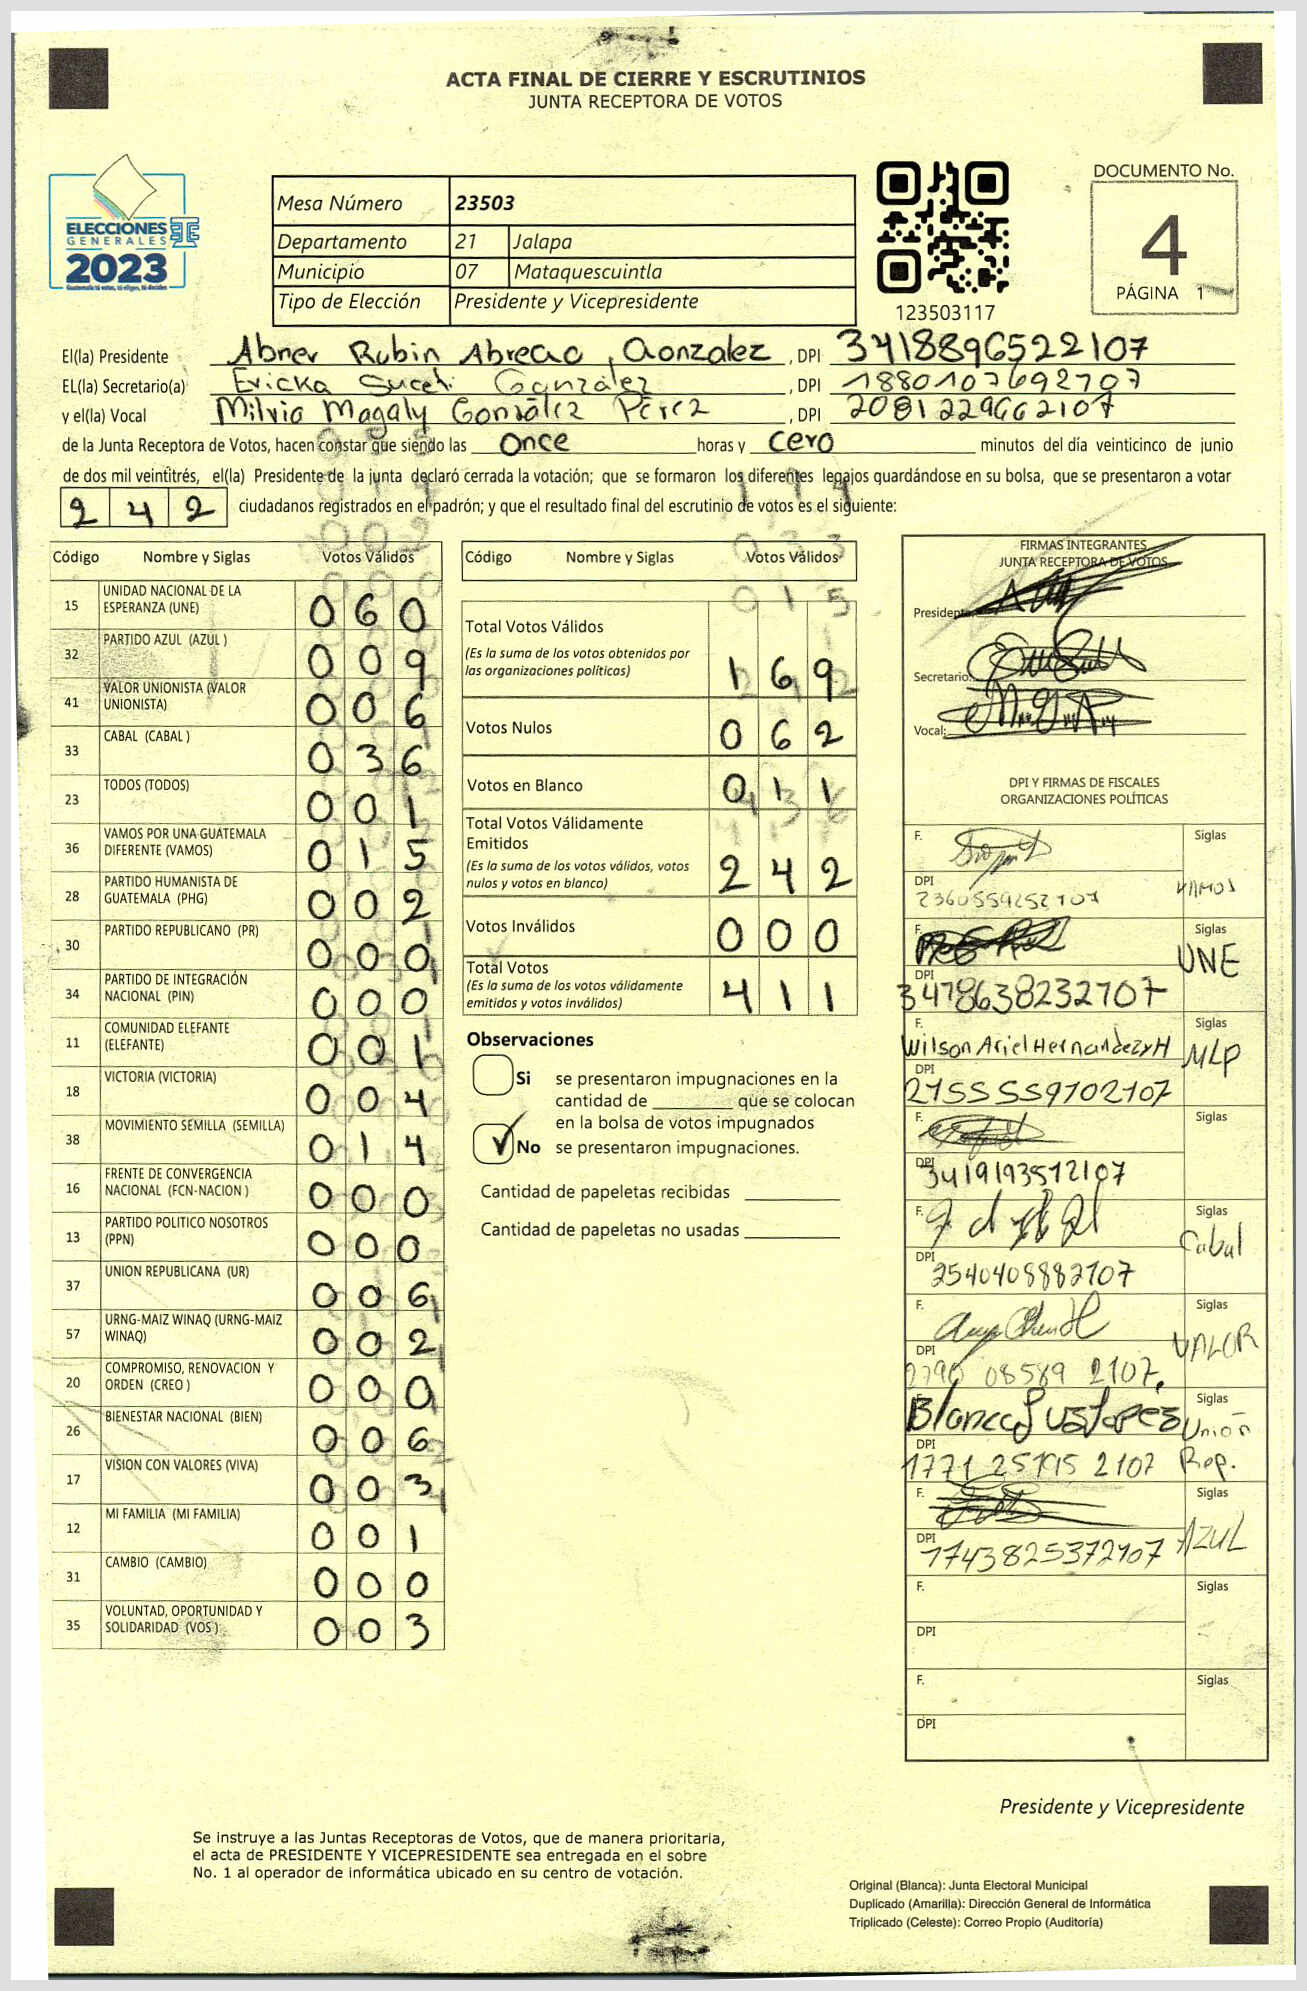 ACTA FINAL DE CIERRE Y ESCRUTINIOS
JUNTA RECEPTORA DE VOTOS
ELECCIONES
GENERALES
2023
Mesa Número 23503
Departamento 21 Jalapa
Municipio 07 Mataquescuintla
Tipo de Elección Presidente y Vicepresidente
123503117
DOCUMENTO No.
4
PÁGINA 1
El(la) Presidente Abner Rubin Abrego Gonzalez, DPI 3418896522107
EL(la) Secretario(a) Ericka Suceli González, DPI 1880107692707
y el(la) Vocal Milvia Magaly González Pérez, DPI 2081229662107
de la Junta Receptora de Votos, hacen constar que siendo las once horas y cero minutos del día veinticinco de junio
de dos mil veintitrés, el(la) Presidente de la junta declaró cerrada la votación; que se formaron los diferentes legajos guardándose en su bolsa, que se presentaron a votar
2 4 2 ciudadanos registrados en el padrón; y que el resultado final del escrutinio de votos es el siguiente:
Código Nombre y Siglas Votos Válidos
15 UNIDAD NACIONAL DE LA ESPERANZA (UNE) 0 6 0
32 PARTIDO AZUL (AZUL ) 0 0 9
41 VALOR UNIONISTA (VALOR UNIONISTA) 0 0 6
33 CABAL (CABAL ) 0 3 6
23 TODOS (TODOS) 0 0 1
36 VAMOS POR UNA GUATEMALA DIFERENTE (VAMOS) 0 1 5
28 PARTIDO HUMANISTA DE GUATEMALA (PHG) 0 0 2
30 PARTIDO REPUBLICANO (PR) 0 0 0
34 PARTIDO DE INTEGRACIÓN NACIONAL (PIN) 0 0 0
11 COMUNIDAD ELEFANTE (ELEFANTE) 0 0 1
18 VICTORIA (VICTORIA) 0 0 4
38 MOVIMIENTO SEMILLA (SEMILLA) 0 1 4
16 FRENTE DE CONVERGENCIA NACIONAL (FCN-NACION ) 0 0 0
13 PARTIDO POLITICO NOSOTROS (PPN) 0 0 0
37 UNION REPUBLICANA (UR) 0 0 6
57 URNG-MAIZ WINAQ (URNG-MAIZ WINAQ) 0 0 2
20 COMPROMISO, RENOVACION Y ORDEN (CREO ) 0 0 0
26 BIENESTAR NACIONAL (BIEN) 0 0 6
17 VISION CON VALORES (VIVA) 0 0 3
12 MI FAMILIA (MI FAMILIA) 0 0 1
31 CAMBIO (CAMBIO) 0 0 0
35 VOLUNTAD, OPORTUNIDAD Y SOLIDARIDAD (VOS ) 0 0 3
Código Nombre y Siglas Votos Válidos
Total Votos Válidos 1 6 9
(Es la suma de los votos obtenidos por
las organizaciones políticas)
Votos Nulos 0 6 2
Votos en Blanco 0 1 1
Total Votos Válidamente
Emitidos 2 4 2
(Es la suma de los votos válidos, votos
nulos y votos en blanco)
Votos Inválidos 0 0 0
Total Votos 4 1 1
(Es la suma de los votos válidamente
emitidos y votos inválidos)
Observaciones
Si se presentaron impugnaciones en la
cantidad de que se colocan
en la bolsa de votos impugnados
No se presentaron impugnaciones.
Cantidad de papeletas recibidas
Cantidad de papeletas no usadas
FIRMAS INTEGRANTES
JUNTA RECEPTORA DE VOTOS
Presidente
Secretario:
Vocal:
DPI Y FIRMAS DE FISCALES
ORGANIZACIONES POLÍTICAS
F. Siglas
DPI 2360559252107 VAMOS
F. Siglas
DPI 3478638232107 UNE
F. Wilson Ariel Hernandez y H Siglas
DPI 2155559702107 MLP
F. Siglas
DPI 3419193512107
F. Siglas
DPI 2540408882107 Cabal
F. Siglas
DPI 2790 08589 2107. VALOR
F. Blanca Siglas
DPI 1771 25195 2107 Unión Rep.
F. Siglas
DPI 1743825372107 AZUL
F. Siglas
DPI
F. Siglas
DPI
Presidente y Vicepresidente
Se instruye a las Juntas Receptoras de Votos, que de manera prioritaria,
el acta de PRESIDENTE Y VICEPRESIDENTE sea entregada en el sobre
No. 1 al operador de informática ubicado en su centro de votación.
Original (Blanca): Junta Electoral Municipal
Duplicado (Amarilla): Dirección General de Informática
Triplicado (Celeste): Correo Propio (Auditoría)